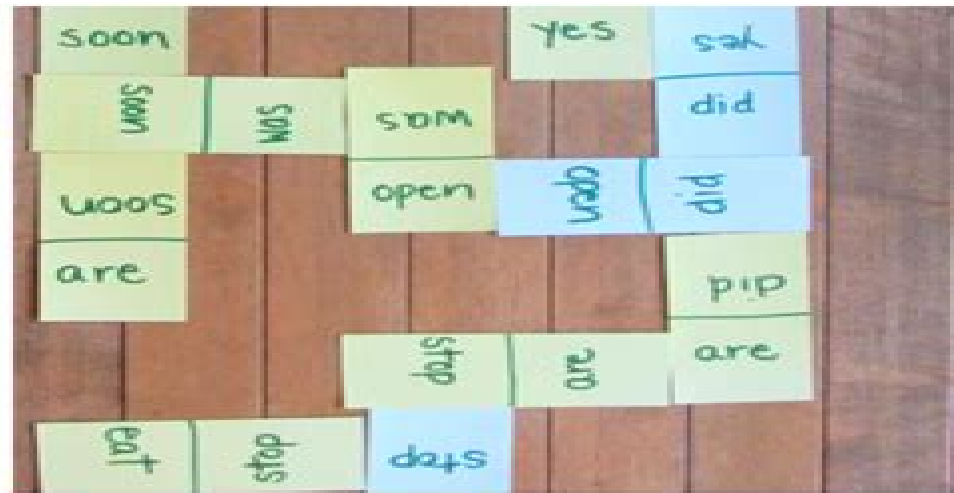 soon yes yes
soon was was did
soon open open did
are did
stop are are
eat stop stop